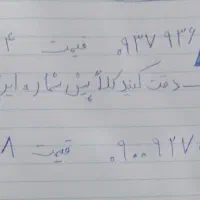 ۰۹۳۷۹۳۶ قیمت ۴
دقت کنید کلاً پیش شماره این
۰۹۰۰۹۲۷ قیمت ۸